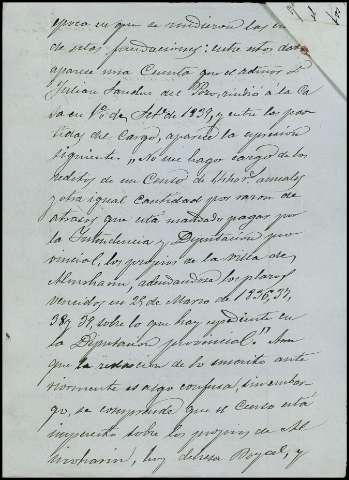 época en que se rindieron las
de estas fundaciones: entre estos datos
aparece una Cuenta que el admor D.
Julian Sanchez del Pozo, rindió á la Ca
sa en 1º de Sete. de 1839, y entre las par
tidas del Cargo, aparece la espresion
siguiente: "No me hago cargo de los
reditos de un Censo de anuales
y otra igual cantidad por razon de
atrasos que está mandado pagar por
la Intendencia y Diputación pro
vincial, los propios de la villa de
Almoharin, adeudandose los plazos
vencidos en 25 de Marzo de 1836, 37,
38 y 39, sobre lo que hay espediente en
la Diputación provincial." Aun
que la redaccion de lo inscrito ante
riormente es algo confusa, sin embar
go, se comprende que el Censo está
impuesto sobre los propios de Al
moharin, hoy dehesa Boyal, y